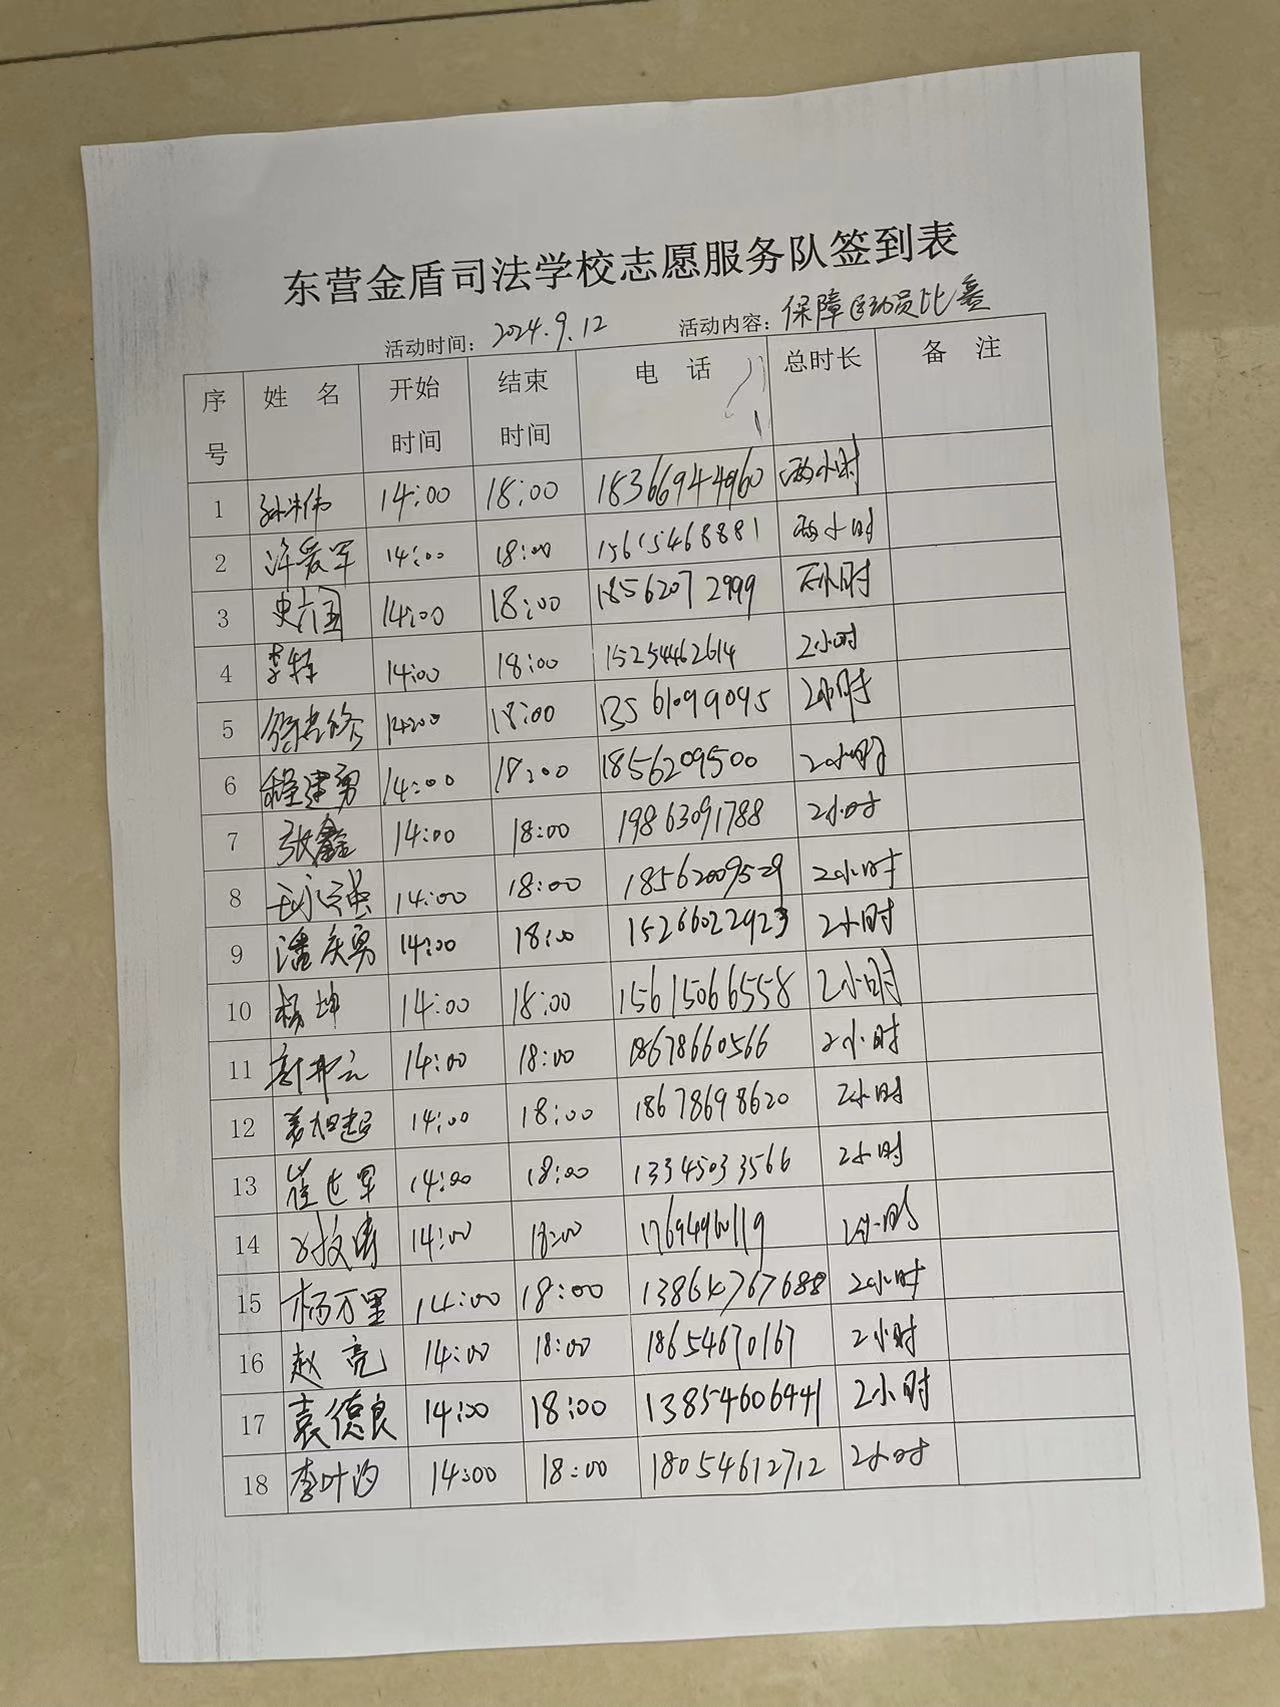 东营金盾司法学校志愿服务队签到表
活动时间：2024.9.12 活动内容：保障运动员比赛
序号 姓 名 开始时间 结束时间 电 话 总时长 备 注
1 14:00 18:00 18366944960 两小时
2 许爱军 14:00 18:00 15615468881 两小时
3 14:00 18:00 18562072999 小时
4 李特 14:00 18:00 15254462614 2小时
5 14:00 18:00 13561099095 2小时
6 程建勇 14:00 18:00 1856209500 2小时
7 张鑫 14:00 18:00 19863091788 2小时
8 王永强 14:00 18:00 18562009529 2小时
9 潘庆勇 14:00 18:00 15266022923 2小时
10 杨坤 14:00 18:00 15615066558 2小时
11 14:00 18:00 18678660566 2小时
12 14:00 18:00 18678698620 2小时
13 崔 军 14:00 18:00 13345033566 2小时
14 14:00 18:00 小时
15 杨万里 14:00 18:00 13864767688 2小时
16 赵亮 14:00 18:00 18654670167 2小时
17 袁德良 14:00 18:00 13854606441 2小时
18 李叶 14:00 18:00 18054612712 2小时